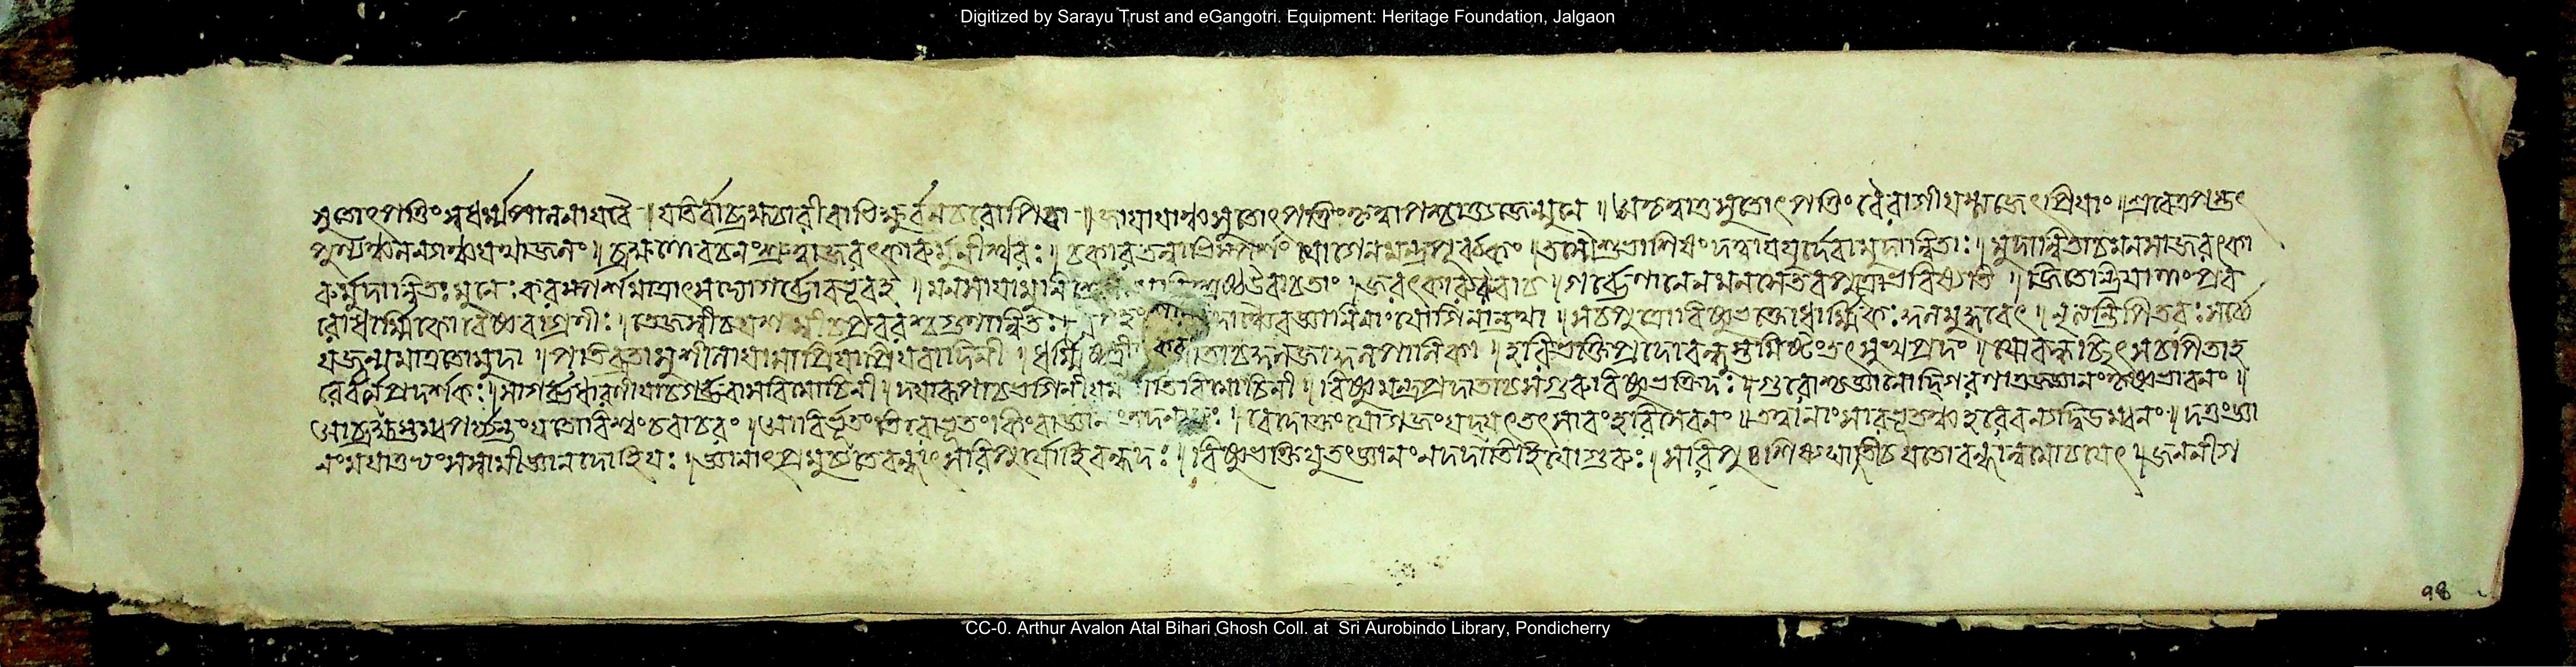 Digitized by Sarayu Trust and eGangotri. Equipment: Heritage Foundation, Jalgaon
সুতোৎপত্তিং স্বধর্ম্মপালনায়বৈ । যতির্বাব্রহ্মচারীবাভিক্ষুর্বনচরোপিবা । জায়ায়াশ্চসুতোৎপত্তিং কৃত্বাপশ্চাদ্ভজেন্মুনে । অকৃত্বাতুসুতোৎপত্তিং বৈরাগীযস্ত্যজেৎপ্রিয়াং । স্রবেত্তপস্তৎ
পুণ্যঞ্চ যথাজলং । ব্রহ্মণোবচনংশ্রুত্বাজরৎকারুর্মুনীশ্বরঃ । চকারতন্নাভিস্পর্শং যোগেনমন্ত্রপূর্ব্বকং । তস্মৈশুভাশিষং দত্ত্বাযযুর্দেবামুদান্বিতাঃ । মুদান্বিতাচমনসাজরৎকা
রুর্মুদান্বিতঃ মুনেঃ করস্পর্শমাত্রাৎসদ্যোগর্ভোবভূবহ । মনসায়ামুনি উবাচতাং । জরৎকারুরুবাচ । গর্ভেণানেনমনসেতবপুত্রোভবিষ্যতি । জিতেন্দ্রিয়াণাংপ্রব
রোধার্ম্মিকোবৈষ্ণবাগ্রণীঃ । তেজস্বীচ গুণান্বিতঃ জ্ঞানিনাংযোগিনান্তথা । সচপুত্রোবিষ্ণুভক্তোধার্ম্মিকঃ কুলমুদ্ধরেৎ । নৃত্যন্তিপিতরঃসর্ব্বে
যজ্জন্মমাত্রতোমুদা । পতিব্রতাসুশীলাযাসাপ্রিয়াপ্রিয়বাদিনী । ধর্ম্মিষ্ঠা কুলপালিকা । হরিভক্তিপ্রদোবন্ধু সুখপ্রদং । যোবন্ধচ্ছিৎসচপিতাহ
রের্বর্ত্মপ্রদর্শকঃ । সাগর্ভধারিণীযাচগর্ভবাসবিমোচিনী । দয়ারূপাচভগিনী বিমোচিনী । বিষ্ণুমন্ত্রপ্রদাতাচসগুরুবিষ্ণুভক্তিদঃ । গুরোশ্চজ্ঞানোদ্গিরণাত্তজ্জ্ঞানংকৃষ্ণভাবনং ।
আব্রহ্মস্তম্বপর্য্যন্তংযতোবিশ্বংচরাচরং । আবির্ভূতংতিরোভূতংকিংবাজ্ঞানং । বেদোক্তংযোগজংযদ্যৎতৎসারংহরিসেবনং । তত্ত্বানাংসারভূতঞ্চহরেরন্যদ্বিড়ম্বনং । দত্তংজ্ঞা
নংময়াতুভ্যংসস্বামীজ্ঞানদোহিযঃ । জ্ঞানাৎপ্রমুচ্যতেবন্ধাৎসরিপুর্যোহিবন্ধদঃ । বিষ্ণুভক্তিযুতংজ্ঞানংনদদাতিহিযোগুরুঃ । সরিপুঃশিষ্যঘাতীচযতোবন্ধান্নমোচয়েৎ । জননীগ
৭৪
CC-0. Arthur Avalon Atal Bihari Ghosh Coll. at Sri Aurobindo Library, Pondicherry